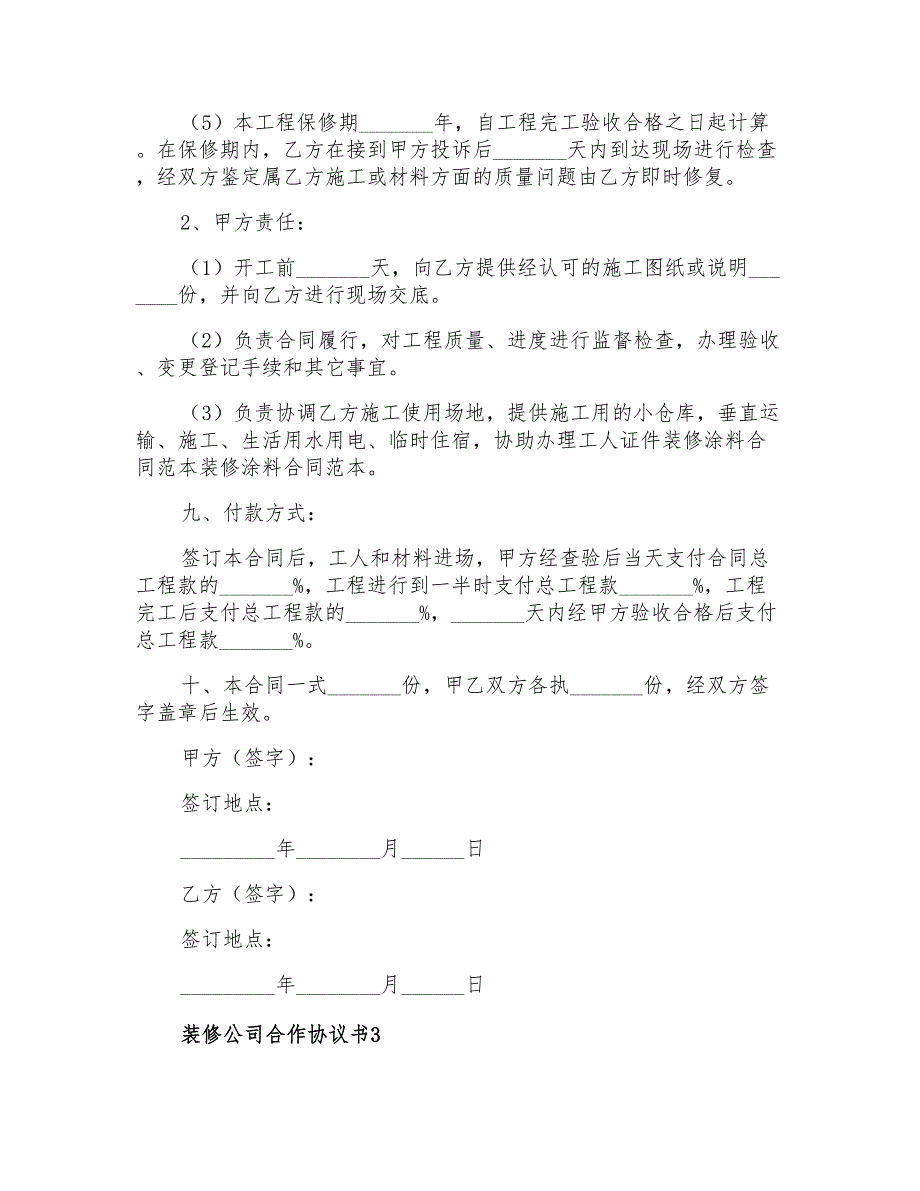 （5）本工程保修期_______年，自工程完工验收合格之日起计算
。在保修期内，乙方在接到甲方投诉后_______天内到达现场进行检查
，经双方鉴定属乙方施工或材料方面的质量问题由乙方即时修复。
2、甲方责任：
（1）开工前_______天，向乙方提供经认可的施工图纸或说明___
____份，并向乙方进行现场交底。
（2）负责合同履行，对工程质量、进度进行监督检查，办理验收
、变更登记手续和其它事宜。
（3）负责协调乙方施工使用场地，提供施工用的小仓库，垂直运
输、施工、生活用水用电、临时住宿，协助办理工人证件装修涂料合
同范本装修涂料合同范本。
九、付款方式：
签订本合同后，工人和材料进场，甲方经查验后当天支付合同总
工程款的_______%，工程进行到一半时支付总工程款_______%，工程
完工后支付总工程款的_______%，_______天内经甲方验收合格后支付
总工程款_______%。
十、本合同一式_______份，甲乙双方各执_______份，经双方签
字盖章后生效。
甲方（签字）：
签订地点：
_________年________月______日
乙方（签字）：
签订地点：
_________年________月______日
装修公司合作协议书3